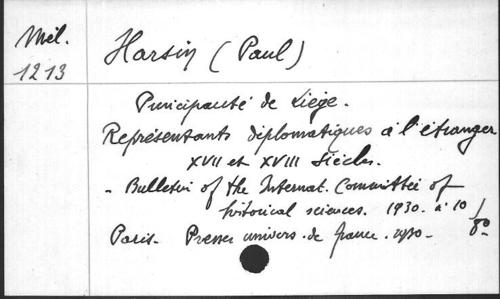 Mél.
1213
Harsin (Paul)
Principauté de Liège.
Représentants diplomatiques à l'étranger
XVII et XVIII Siècles.
- Bulletin of the Internat. Committee of
historical sciences. 1930. n° 10
Paris. Presses univers. de france. 1930. 8°